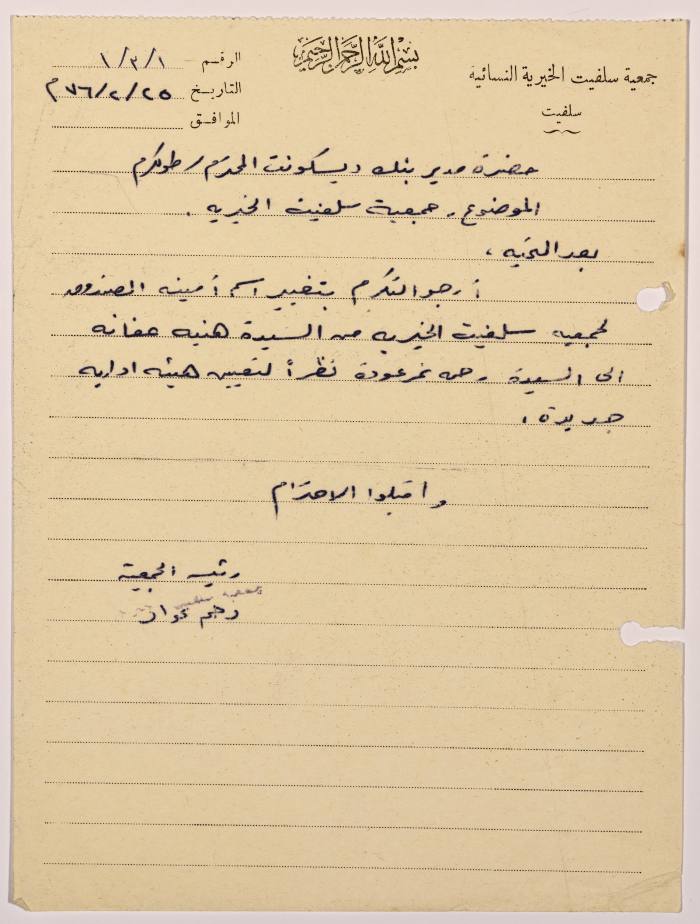 بسم الله الرحمن الرحيم
جمعية سلفيت الخيرية النسائية
سلفيت
الرقم ١/٣/١
التاريخ ٧٦/٢/٢٥م
الموافق
حضرة مدير بنك ديسكونت المحترم / طولكرم
الموضوع، جمعية سلفيت الخيريه .
بعد التحيه ،
أرجو التكرم بتغيير اسم أمينه الصندوق
لجمعيه سلفيت الخيريه من السيدة هنيه عفانه
الى السيدة نظرأ لتعيين هيئه اداريه
جديدة .
واقبلوا الاحترام
رئيسه الجمعية